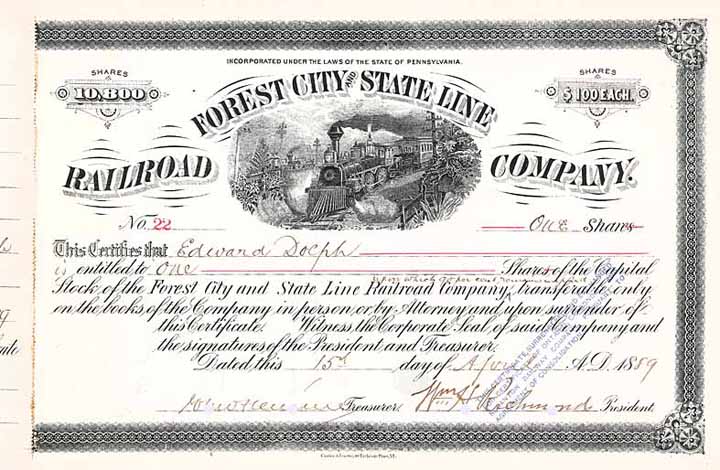 INCORPORATED UNDER THE LAWS OF THE STATE OF PENNSYLVANIA.
SHARES
10,800
SHARES
$100 EACH.
FOREST CITY AND STATE LINE
RAILROAD COMPANY.
No. 22
One Shares
This Certifies that Edward Dolph
is entitled to One Shares of the Capital
Stock of the Forest City and State Line Railroad Company, transferable only
on the books of the Company in person or by Attorney and upon surrender of
this Certificate. Witness, the Corporate Seal, of said Company and
the signatures of the President and Treasurer.
Dated this 15th day of April A.D. 1889
Treasurer. Wm. Richmond President.